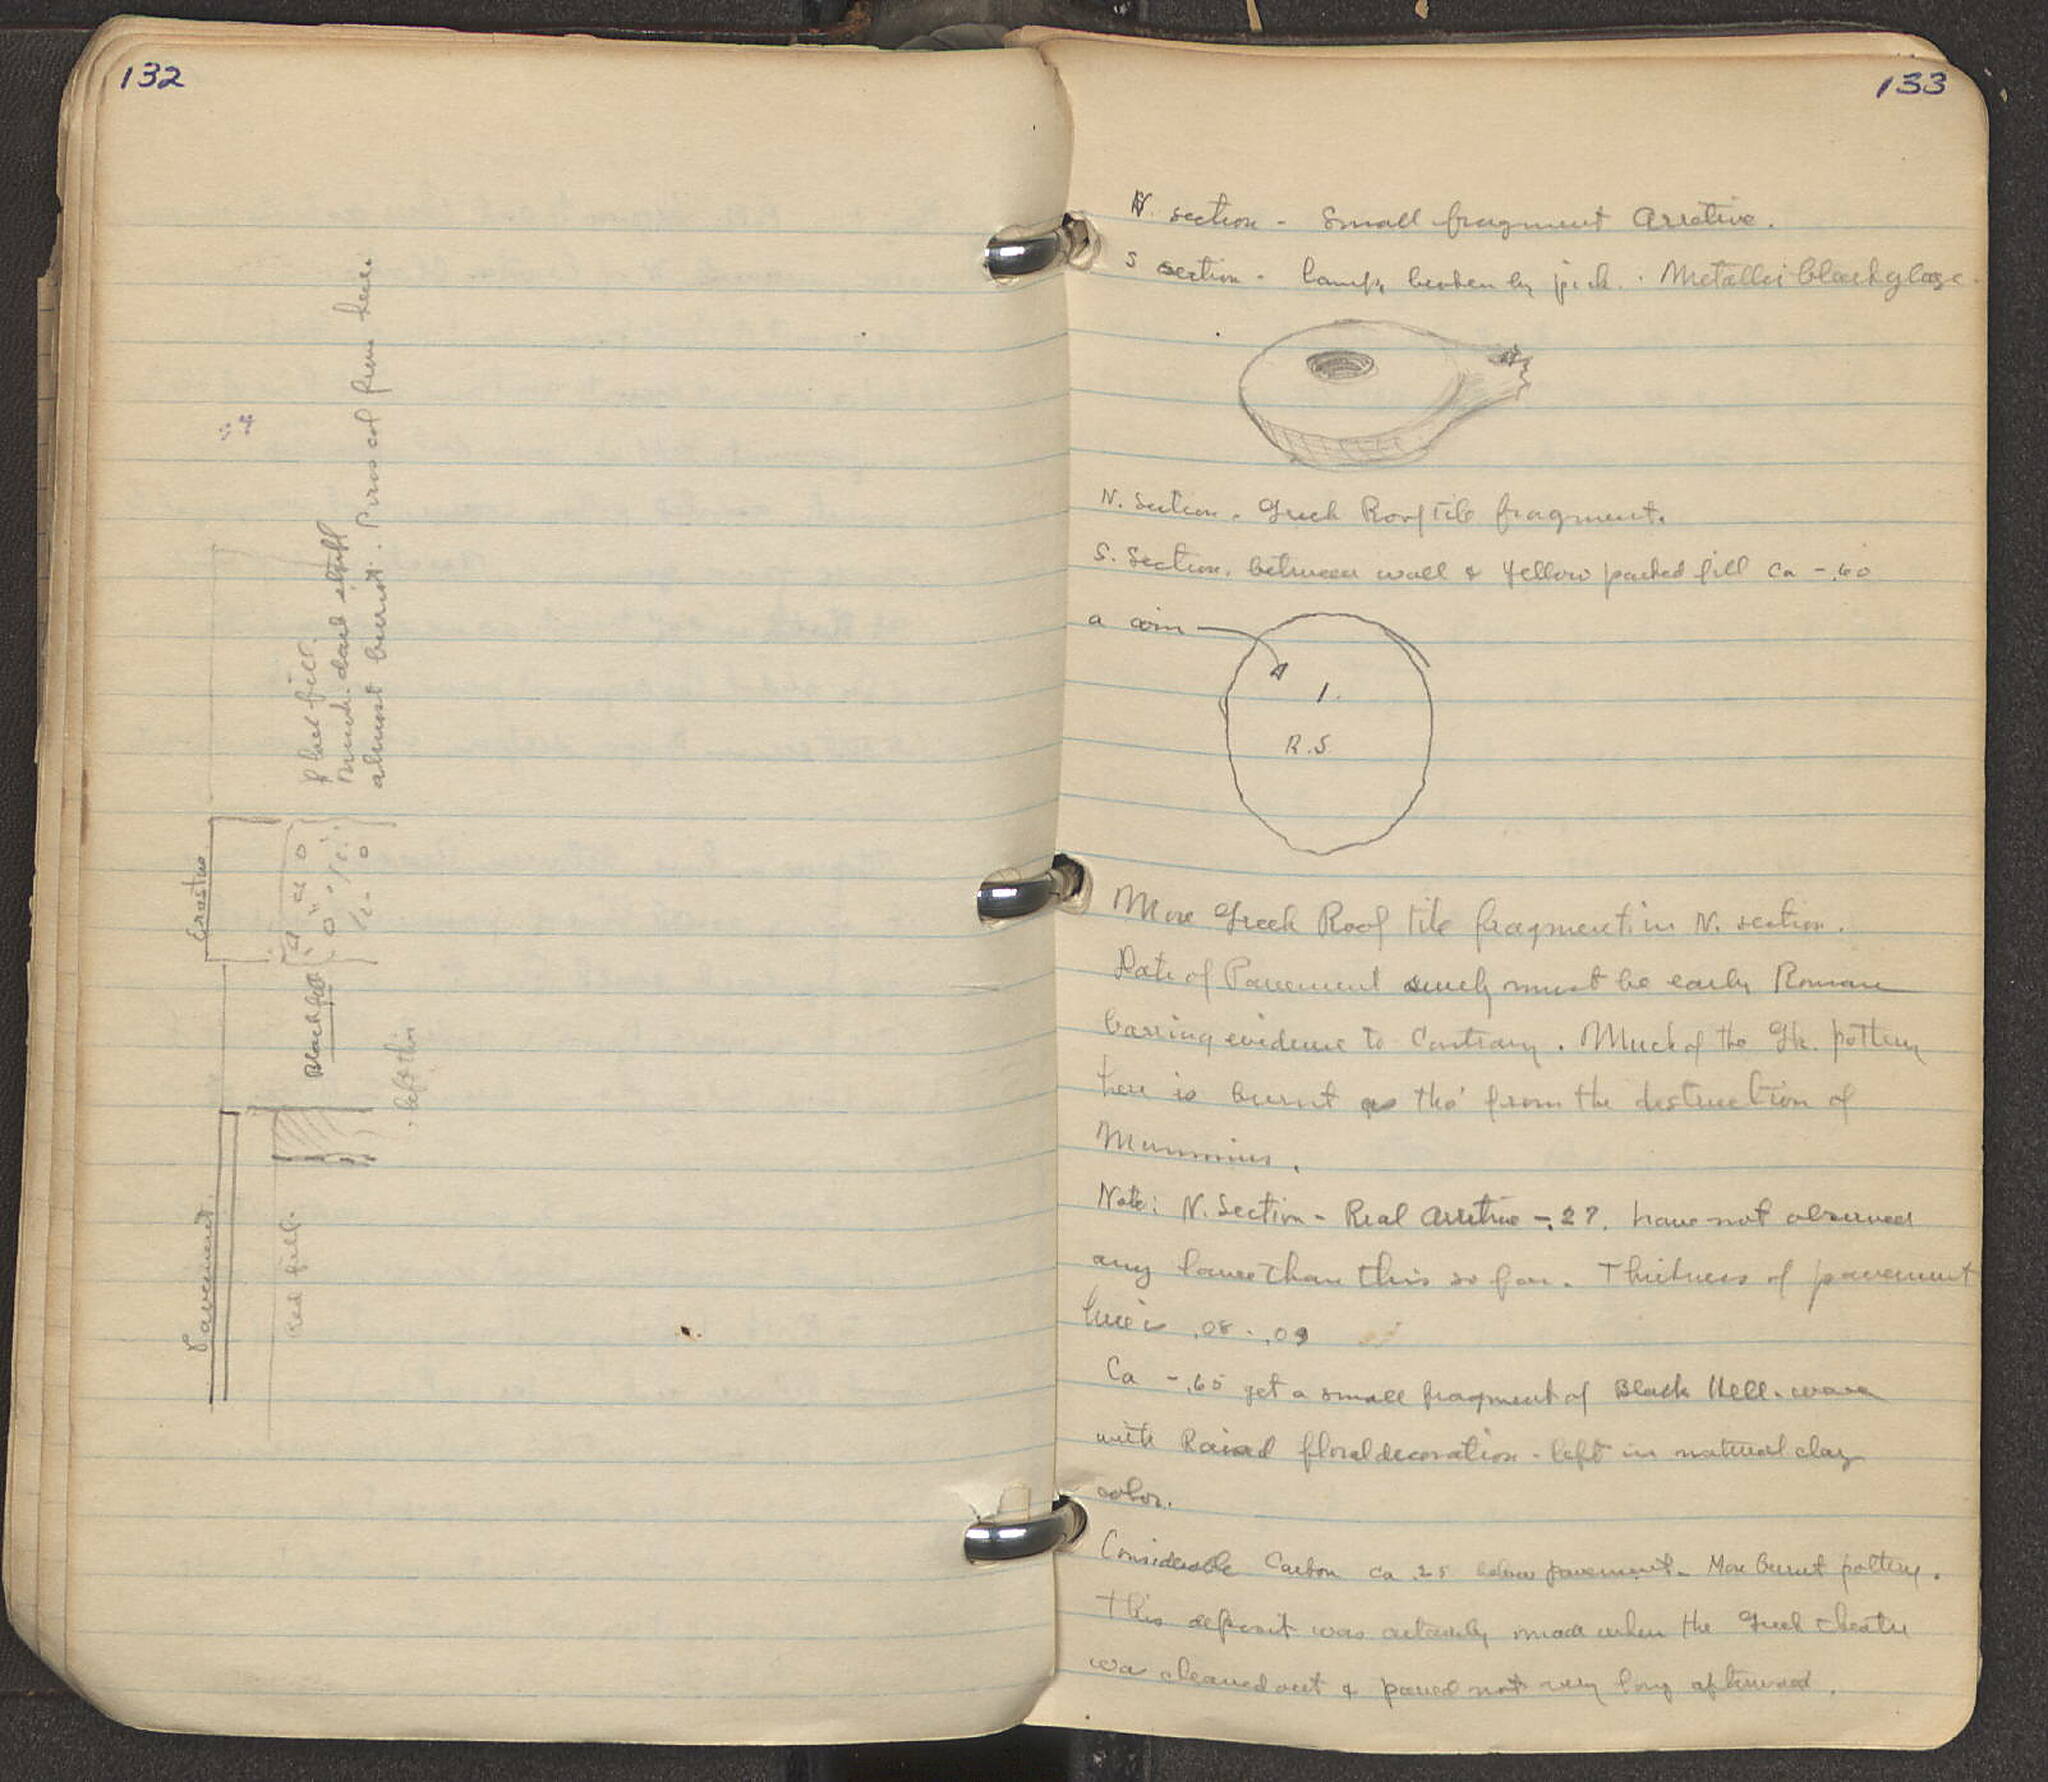 132
Pavement
Erastus
Red fill.
Black fill
left thin
Black fill.
Much dark stuff
almost burnt. from here.
133
N. section - Small fragment Arretine.
S section - lamp, broken by pick. Metallic black glaze.
N. Section. Greek Roof tile fragment.
S. Section. between wall & yellow packed fill ca -.60
a coin
1.
R.S.
More Greek Roof tile fragment in N. section.
Date of Pavement surely must be early Roman
barring evidence to Contrary. Much of the Gk. pottery
here is burnt as tho' from the destruction of
Mummius.
Note: N. Section - Real Arretine -.27. have not observed
any lower than this so far. Thickness of pavement
here is .08 - .09
Ca -.65 get a small fragment of Black Hell. ware
with Raised floral decoration - left in natural clay
color.
Considerable Carbon ca .25 below pavement. More burnt pottery.
This deposit was certainly made when the Greek theatre
was cleaned out & paved not very long afterward.